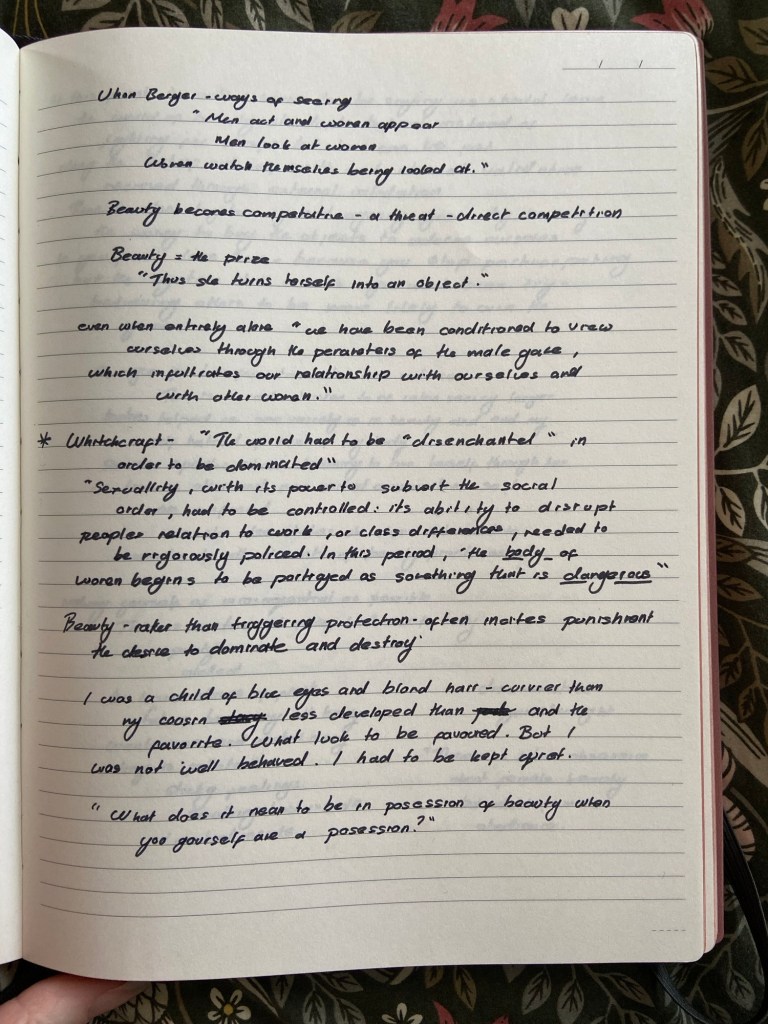 Jhon Berger - ways of seeing
"Men act and women appear
Men look at women
Women watch themselves being looked at."
Beauty becomes competative - a threat - direct competition
Beauty = the prize
"Thus she turns herself into an object."
even when entirely alone "we have been conditioned to view
ourselves through the perameters of the male gaze,
which infultrates our relationship with ourselves and
with other women."
* Whitchcraft - "The world had to be "disenchanted" in
order to be dominated"
"Sexuallity, with its power to subvert the social
order, had to be controlled: its ability to disrupt
peoples relation to work, or class differences, needed to
be rigorously policed. In this period, "the body of
women begins to be portrayed as something that is dangerous"
Beauty - rather than triggering protection - often incites punishment
the desire to dominate and destroy
I was a child of blue eyes and blond hair - curvier than
my cousin less developed than and the
favorite. What luck to be favoured. But I
was not well behaved. I had to be kept quiet.
"What does it mean to be in posession of beauty when
you yourself are a posession?"